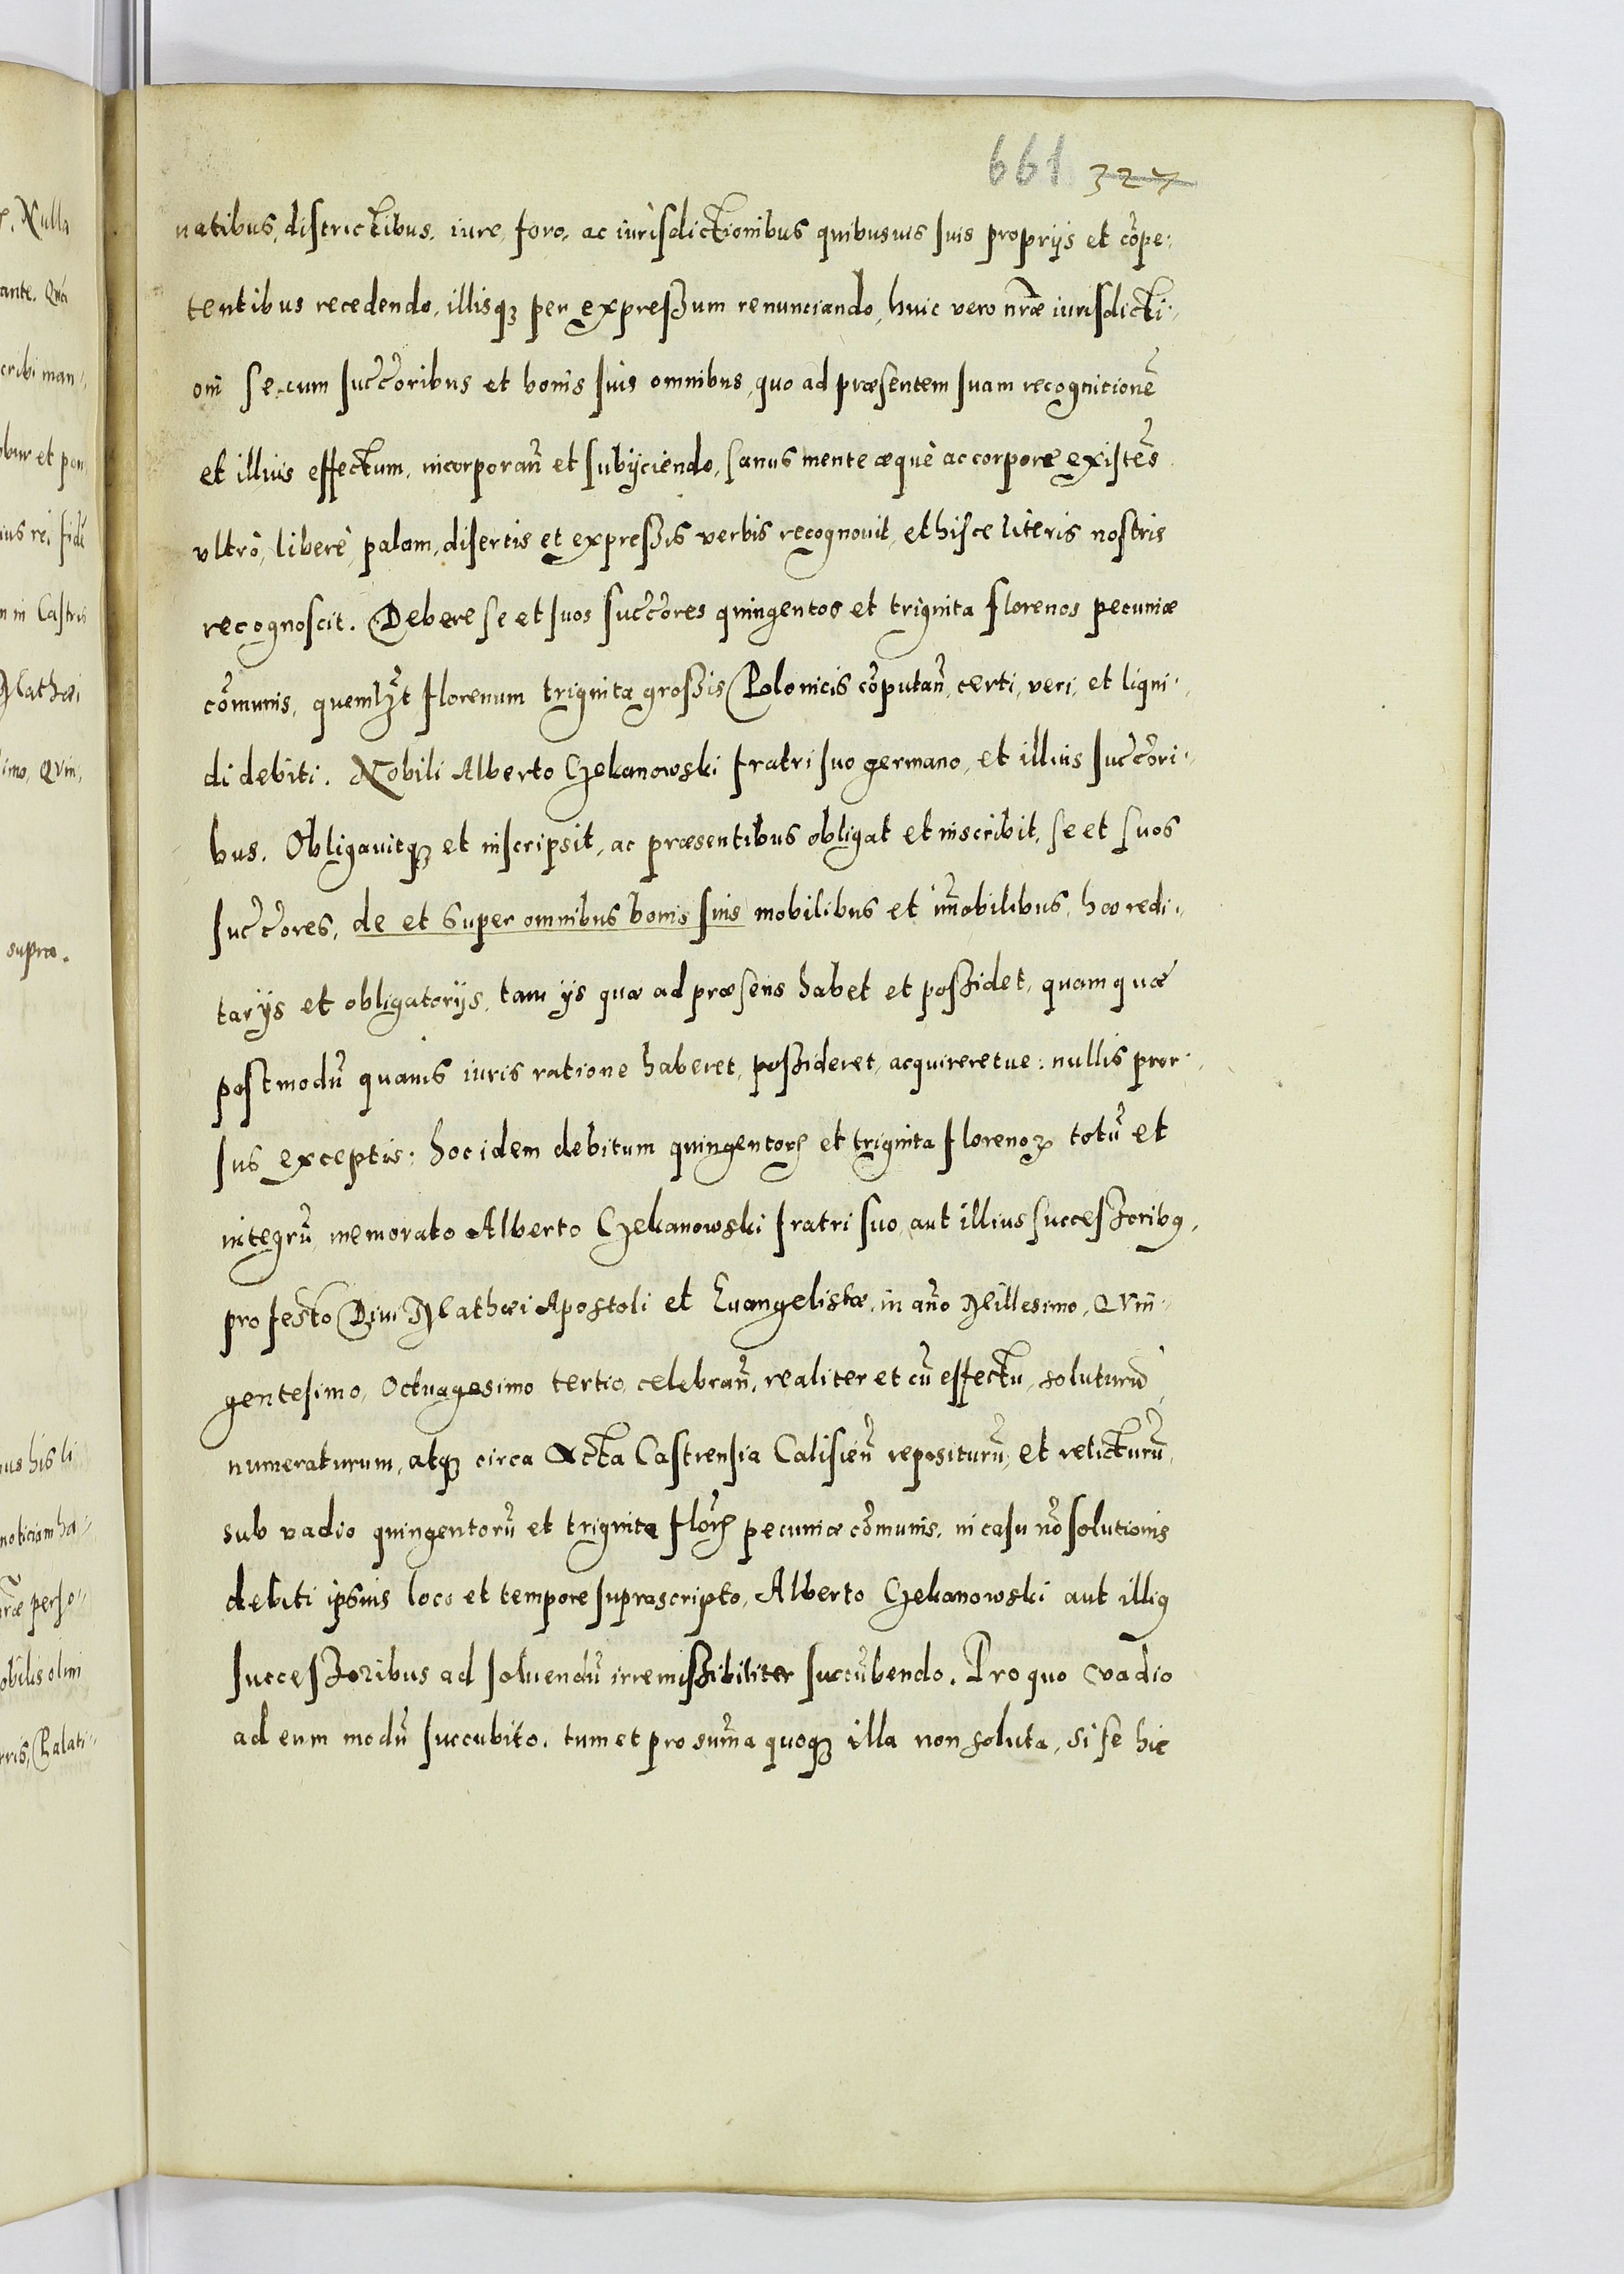 661 327
natibus, districtibus, iure, foro, ac iurisdictionibus quibusuis suis proprijs et cōpe:
tentibus recedendo, illisqꝫ per expressum renunciando, huic vero nrāe iurisdicti:
oni se cum succ̄oribus et bonis suis omnibus, quo ad præsentem suam recognitionē
et illius effectum, incorporan̄ et subijciendo, sanus mente æquè ac corpore existēs
vltrò, liberè, palam, disertis et expressis verbis recognouit, et hisce literis nostris
recognoscit. Debere se et suos succ̄ores quingentos et triginta florenos pecuniæ
cōmunis, quemlꝫt florenum triginta grossis Polonicis cōputan̄, certi, veri, et liqui:
di debiti. Nobili Alberto Czekanowski fratri suo germano, et illius succ̄ori:
bus. Obligauitqꝫ et inscripsit, ac præsentibus obligat et inscribit, se et suos
succ̄ores, de et super omnibus bonis suis mobilibus et im̄obilibus, hæredi:
tarijs et obligatorijs, tam ijs quæ ad præsens habet et possidet, quam quæ
postmodū quauis iuris ratione haberet, possideret, acquireretue: nullis pror:
sus exceptis: hoc idem debitum quingentoꝝ et triginta florenoꝝ totū et
integrū, memorato Alberto Czekanowski fratri suo, aut illius successoribꝯ,
pro festo Diui Mathæi Apostoli et Euangelistæ, in an̄o Millesimo, Quin:
gentesimo, Octuagesimo tertio, celebran̄, realiter et cū effectu, soluturū,
numeraturum, atqꝫ circa Acta Castrensia Calisien̄ repositurū, et relicturū,
sub vadio quingentorū et triginta floꝝ pecuniæ cōmunis, in casu nō solutionis
debiti ipsius loco et tempore suprascripto, Alberto Czekanowski aut illiꝯ
successoribus ad soluendū irremissibiliter succūbendo. Pro quo vadio
ad eum modū succubito, tum et pro sum̄a quoqꝫ illa non soluta, si se hic